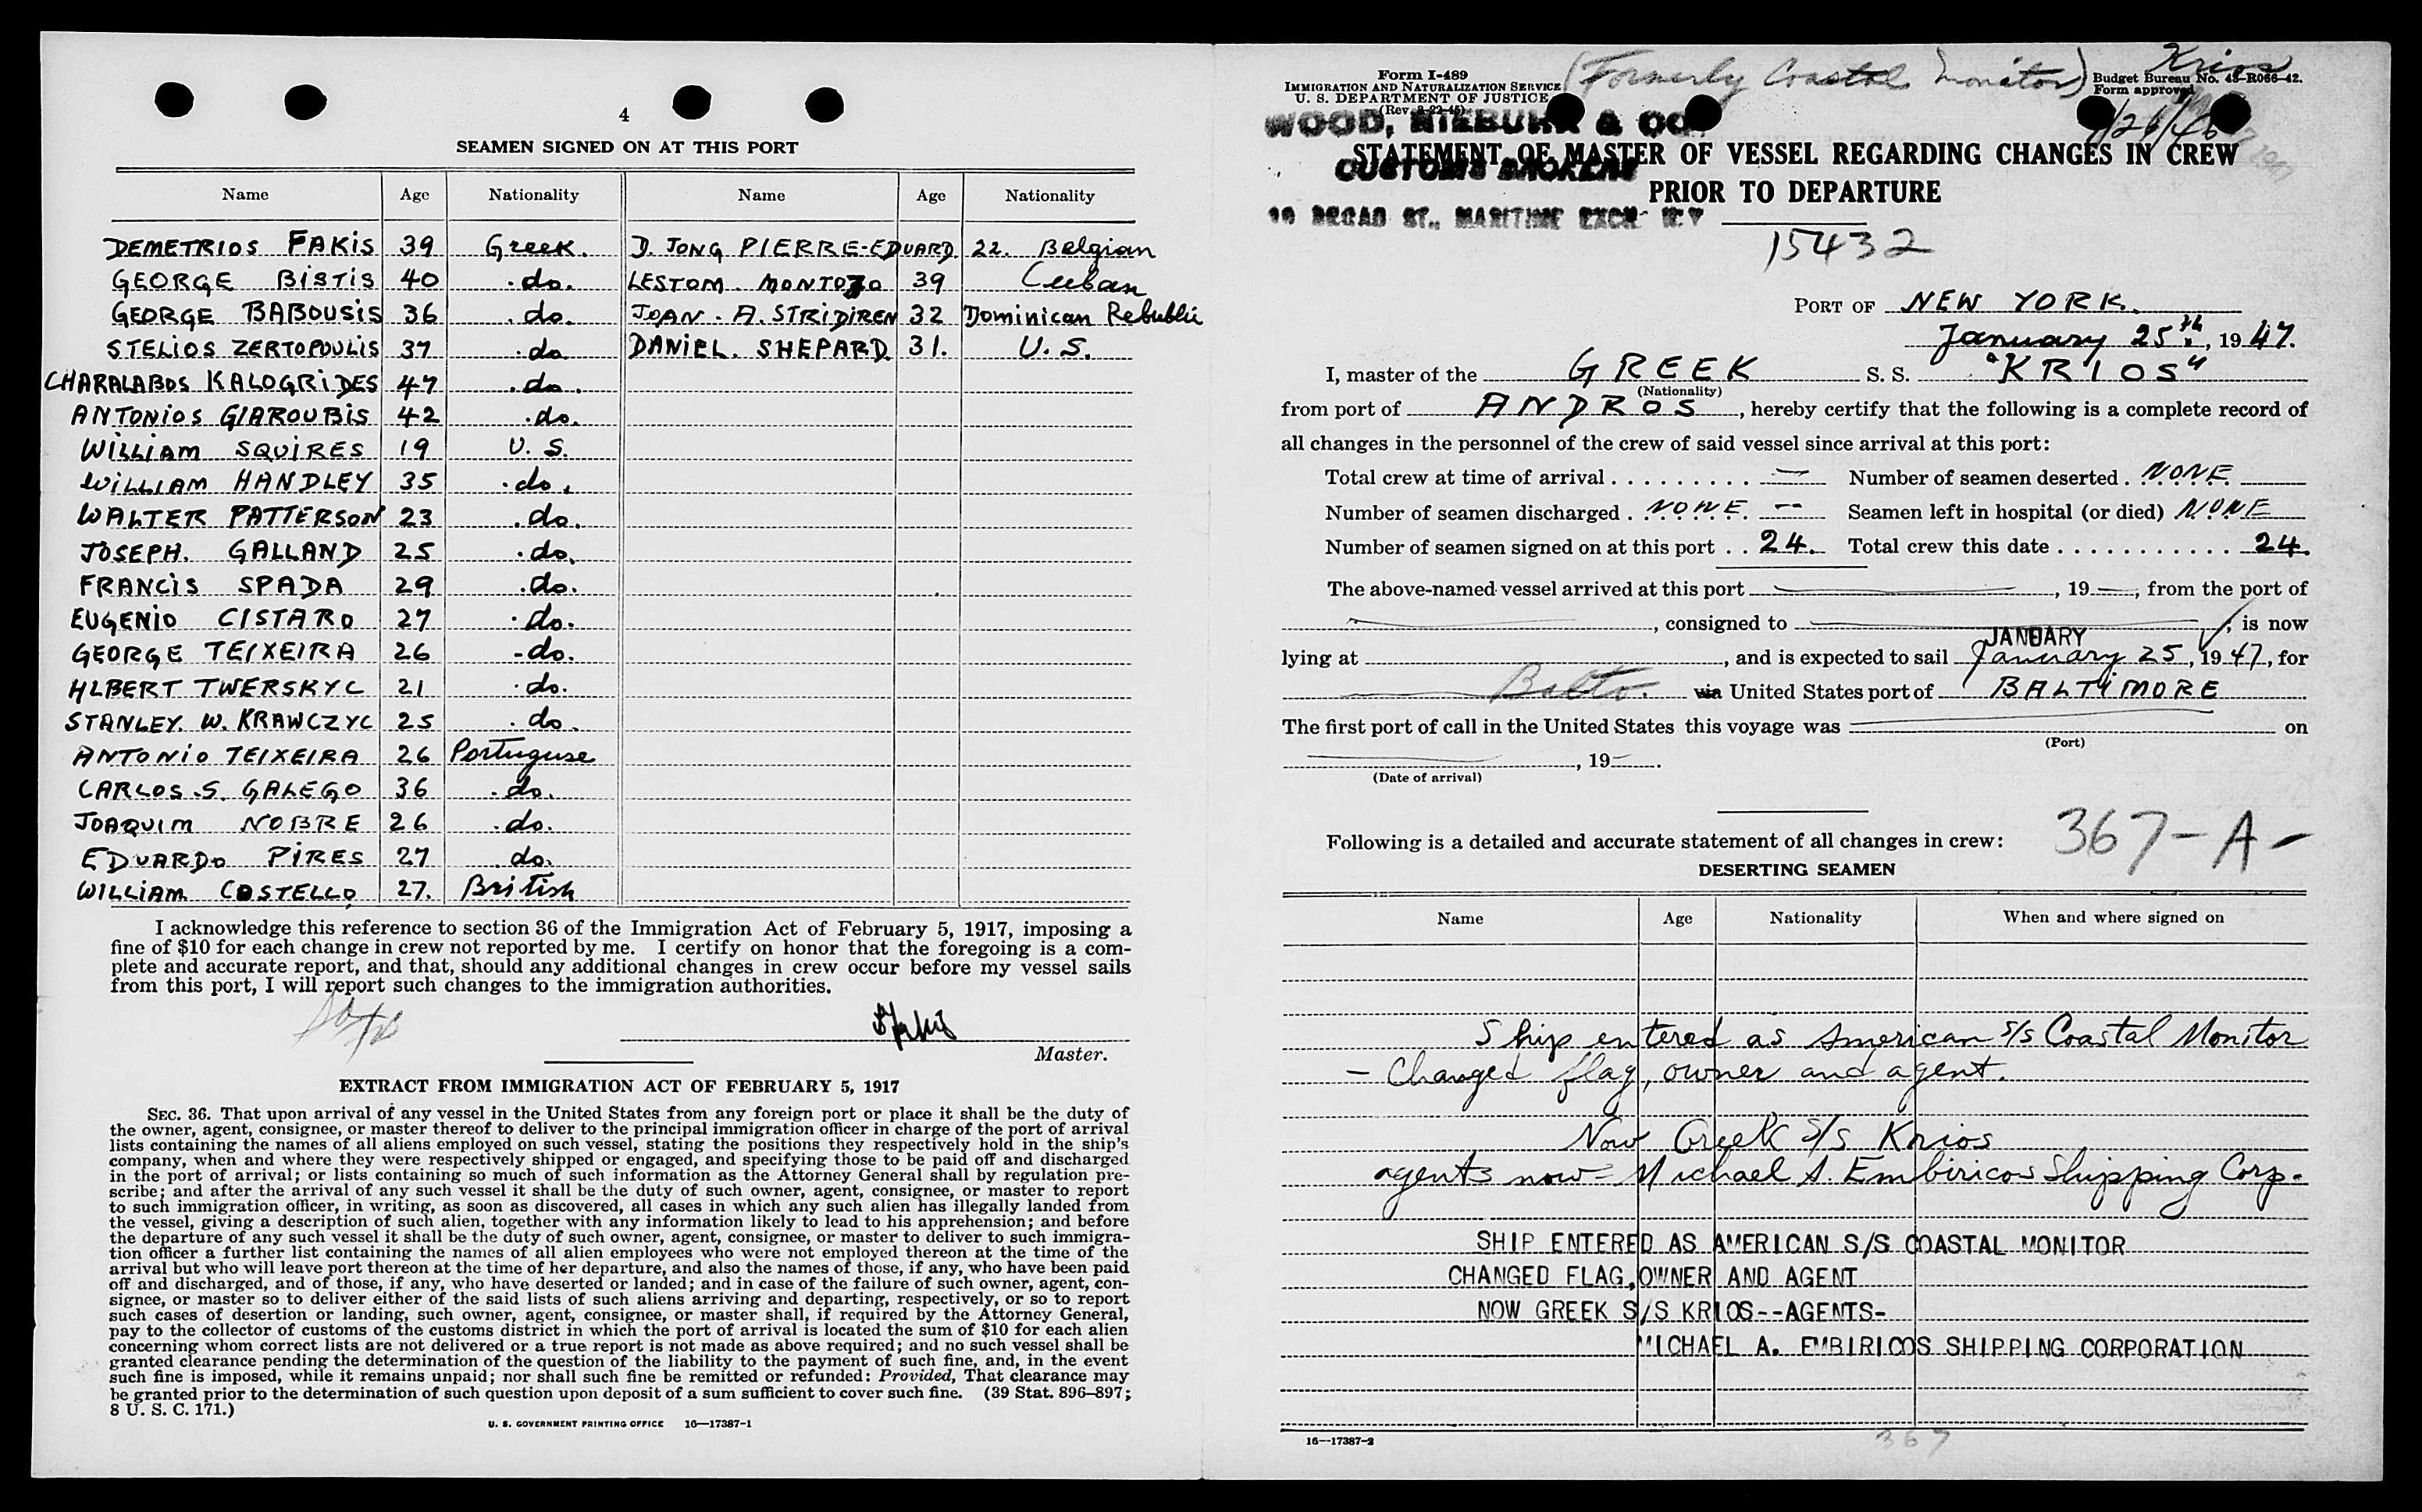 4
SEAMEN SIGNED ON AT THIS PORT
Name Age Nationality Name Age Nationality
DEMETRIOS FAKIS 39 Greek. D. JONG PIERRE-EDUARD 22. Belgian
GEORGE BISTIS 40 .do. LESTOM. 39 Cuban
GEORGE BABOUSIS 36 .do. JOAN. A. STRIDIREN 32 Dominican Rebublic
STELIOS ZERTOPOULIS 37 .do DANIEL. SHEPARD 31. U.S.
CHARALABOS KALOGRIDES 47 .do.
ANTONIOS GIAROUBIS 42 .do.
WILLIAM SQUIRES 19 U. S.
WILLIAM HANDLEY 35 .do.
WALTER PATTERSON 23 .do.
JOSEPH. GALLAND 25 .do.
FRANCIS SPADA 29 .do.
EUGENIO CISTARO 27 .do.
GEORGE TEIXEIRA 26 -do.
ALBERT TWERSKYC 21 .do.
STANLEY. W. KRAWCZYC 25 .do.
ANTONIO TEIXEIRA 26 Portuguse
CARLOS.S. GALEGO 36 .do.
JOAQUIM NOBRE 26 .do.
EDUARDO PIRES 27 do.
WILLIAM COSTELLO 27. British
I acknowledge this reference to section 36 of the Immigration Act of February 5, 1917, imposing a
fine of $10 for each change in crew not reported by me. I certify on honor that the foregoing is a com-
plete and accurate report, and that, should any additional changes in crew occur before my vessel sails
from this port, I will report such changes to the immigration authorities.
Master.
EXTRACT FROM IMMIGRATION ACT OF FEBRUARY 5, 1917
SEC. 36. That upon arrival of any vessel in the United States from any foreign port or place it shall be the duty of
the owner, agent, consignee, or master thereof to deliver to the principal immigration officer in charge of the port of arrival
lists containing the names of all aliens employed on such vessel, stating the positions they respectively hold in the ship's
company, when and where they were respectively shipped or engaged, and specifying those to be paid off and discharged
in the port of arrival; or lists containing so much of such information as the Attorney General shall by regulation pre-
scribe; and after the arrival of any such vessel it shall be the duty of such owner, agent, consignee, or master to report
to such immigration officer, in writing, as soon as discovered, all cases in which any such alien has illegally landed from
the vessel, giving a description of such alien, together with any information likely to lead to his apprehension; and before
the departure of any such vessel it shall be the duty of such owner, agent, consignee, or master to deliver to such immigra-
tion officer a further list containing the names of all alien employees who were not employed thereon at the time of the
arrival but who will leave port thereon at the time of her departure, and also the names of those, if any, who have been paid
off and discharged, and of those, if any, who have deserted or landed; and in case of the failure of such owner, agent, con-
signee, or master so to deliver either of the said lists of such aliens arriving and departing, respectively, or so to report
such cases of desertion or landing, such owner, agent, consignee, or master shall, if required by the Attorney General,
pay to the collector of customs of the customs district in which the port of arrival is located the sum of $10 for each alien
concerning whom correct lists are not delivered or a true report is not made as above required; and no such vessel shall be
granted clearance pending the determination of the question of the liability to the payment of such fine, and, in the event
such fine is imposed, while it remains unpaid; nor shall such fine be remitted or refunded: Provided, That clearance may
be granted prior to the determination of such question upon deposit of a sum sufficient to cover such fine. (39 Stat. 896-897;
8 U. S. C. 171.)
U. S. GOVERNMENT PRINTING OFFICE 16—17387-1
Krios
Form I-489 (Formerly Coastal Monitor) Budget Bureau No. 43-R066-42.
IMMIGRATION AND NATURALIZATION SERVICE Form approved
U. S. DEPARTMENT OF JUSTICE
WOOD, NIEBUHR & CO 1/26/46
STATEMENT OF MASTER OF VESSEL REGARDING CHANGES IN CREW
CUSTOMS BROKERS
PRIOR TO DEPARTURE
BROAD ST., MARITIME EXCH N Y
15432
PORT OF NEW YORK.
January 25th, 1947.
I, master of the GREEK S. S. "KRIOS"
(Nationality)
from port of ANDROS, hereby certify that the following is a complete record of
all changes in the personnel of the crew of said vessel since arrival at this port:
Total crew at time of arrival . . . . . . . . . — Number of seamen deserted . NONE
Number of seamen discharged . NONE. -- Seamen left in hospital (or died) NONE
Number of seamen signed on at this port . . 24. Total crew this date . . . . . . . . . . . 24.
The above-named vessel arrived at this port , 19 —, from the port of
, consigned to , is now
JANUARY
lying at , and is expected to sail January 25, 1947, for
Balto. via United States port of BALTIMORE
The first port of call in the United States this voyage was on
(Port)
, 19—.
(Date of arrival)
Following is a detailed and accurate statement of all changes in crew: 367-A-
DESERTING SEAMEN
Name Age Nationality When and where signed on
Ship entered as American S/s Coastal Monitor
- Changed flag, owner and agent.
Now Greek S/s Krios
agents now = Michael A. Embiricos Shipping Corp.
SHIP ENTERED AS AMERICAN S/S COASTAL MONITOR
CHANGED FLAG, OWNER AND AGENT
NOW GREEK S/S KRIOS--AGENTS-
MICHAEL A. EMBIRICOS SHIPPING CORPORATION
16—17387-2
367